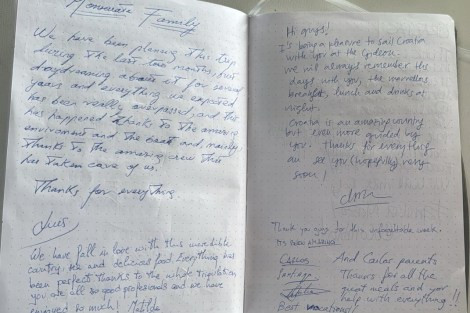 Monserrate Family
We have been planing this trip
during the last two months, but
daydreaming about it for several
years and everything we expected
has been really overpassed, and this
has happened thanks to the amazing
enviroment and the boat and, mainly,
thanks to the amazing crew that
has taken care of us.
Thanks for everything.
We have fall in love with this incredible
country, sea and delicious food. Everything has
been perfect thanks to the whole tripulation
you are all so good profesionals and we have
enjoyed so much! Matilda
Hi guys!
It's being a pleasure to sail Croatia
with you at the Gideon.
We will always remember this
days with you, the marvellous
breakfast, lunch and drinks at
night.
Croatia is an amazing country
but even more guided by
you. Thanks for everything
an see you (hopefully) very
soon!
Thank you guys for this unforgettable week.
It's been
Carlos
Santiago
And Carlos parents
Thanks for all the
great meals and your
help with everything!!
Best vacations!